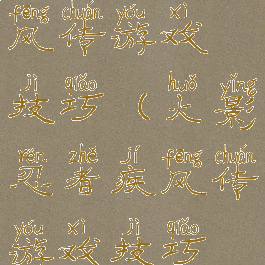 fēng chuán yóu xì
风传游戏
jì qiǎo huǒ yǐng
技巧(火影
rěn zhě jí fēng chuán
忍者疾风传
yóu xì jì qiǎo
游戏技巧